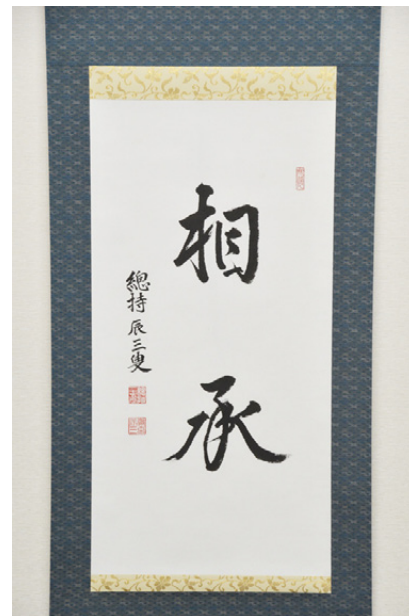 相承
總持 辰三叟